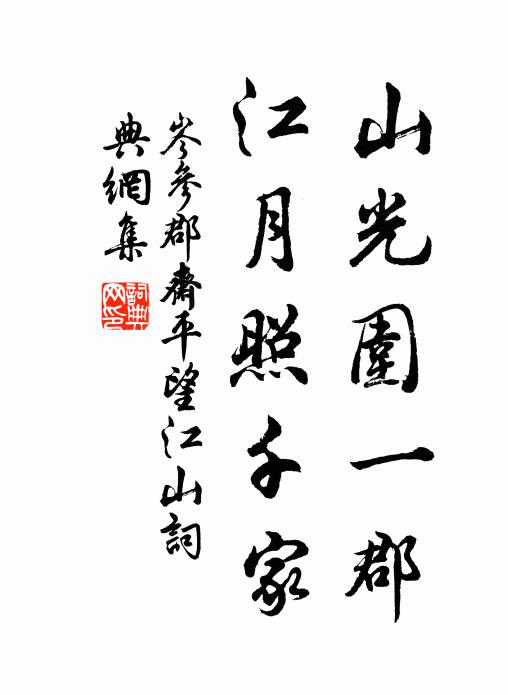 山光圍一郡
江月照千家
岑參郡齋平望江山詞
典網集
詞典網印